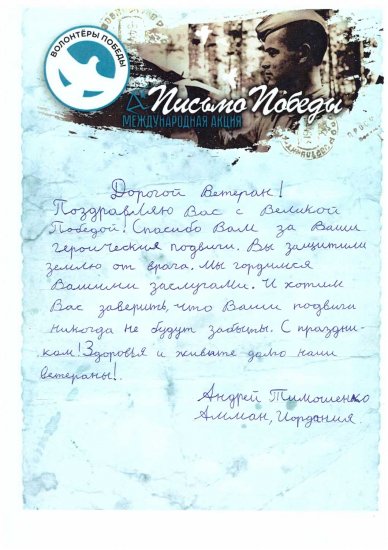 ВОЛОНТЁРЫ ПОБЕДЫ
Письмо Победы
МЕЖДУНАРОДНАЯ АКЦИЯ
Дорогой Ветеран!
Поздравляю Вас с Великой
Победой! Спасибо Вам за Ваши
героические подвиги. Вы защитили
землю от врага. Мы гордимся
Вашими заслугами. И хотим
Вас заверить, что Ваши подвиги
никогда не будут забыты. С праздни-
ком! Здоровья и живите долго наши
ветераны!
Андрей Тимошенко
Амман, Иордания.